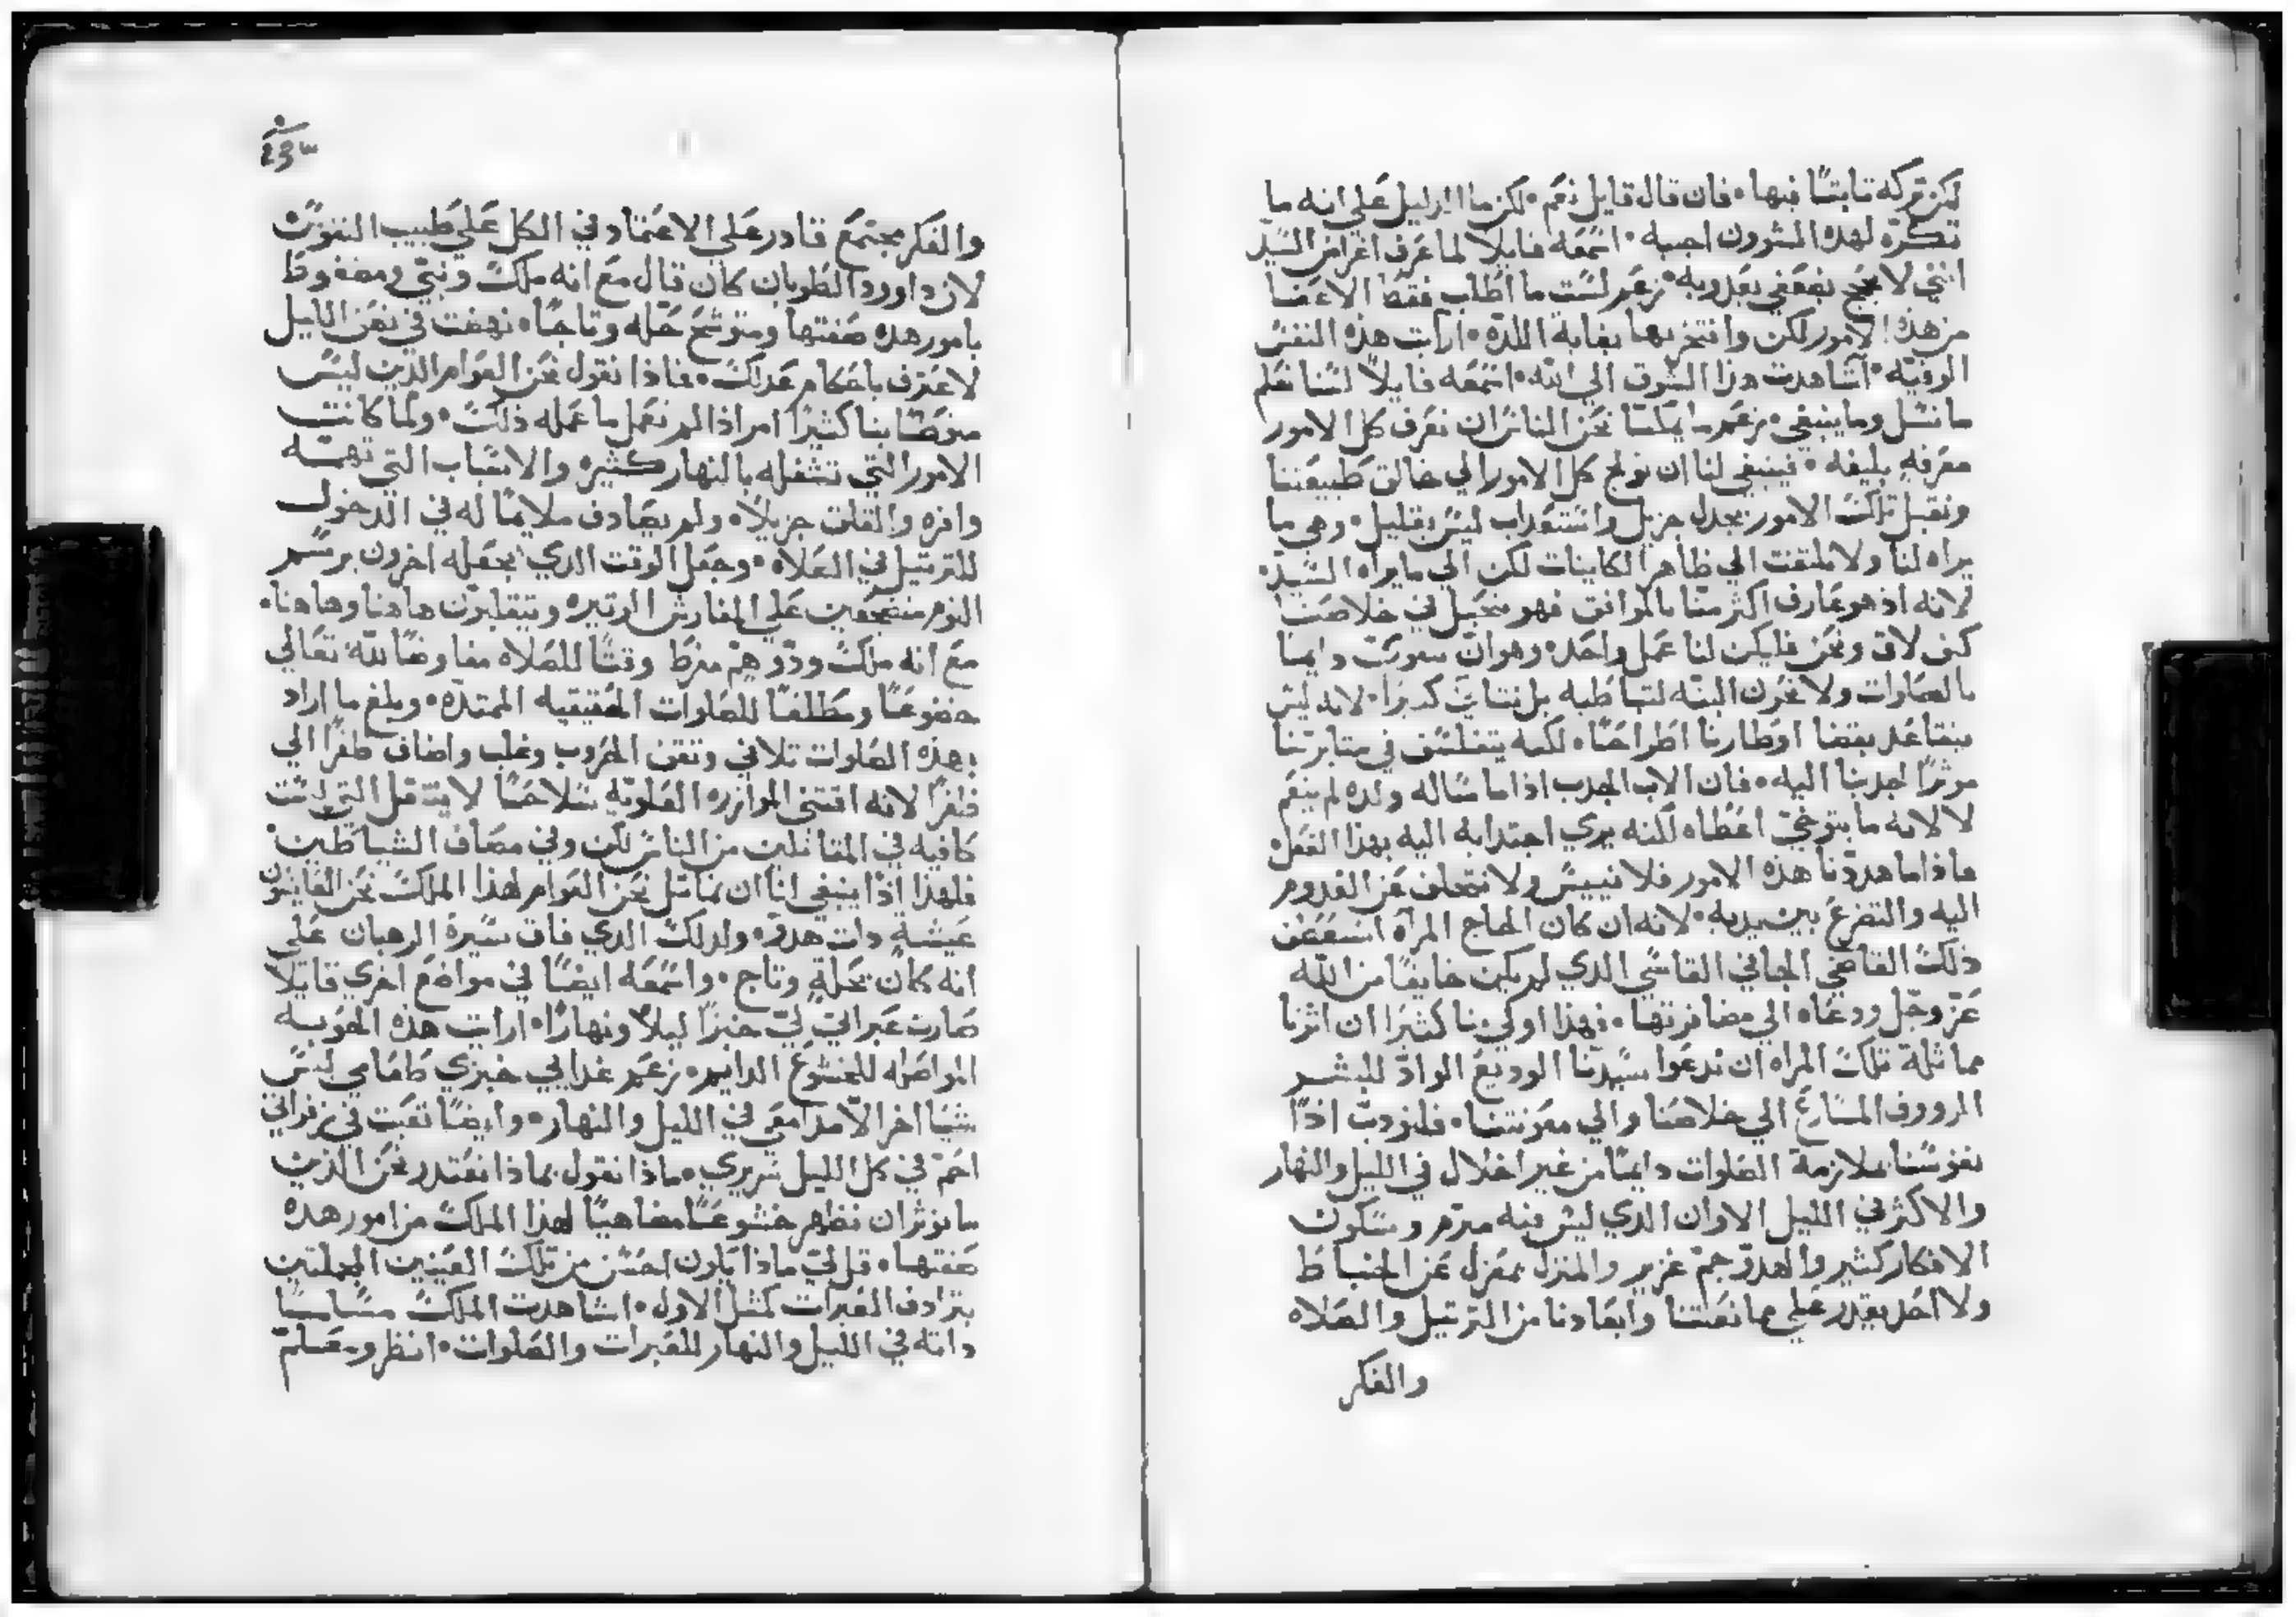 لكن تركه تابتًا فيها • فان قال قايل نعم • لكن ما الدليل على انه ما
تكرّه لهده المشرون اجيبه • اسمعه قايلاً لما عرف اغراض السيّد
انني لا بضعفي زعم لست ما اطلب فقط الاعفا
من هذه الامور لكن وافتخر بها بغاية اللدّه • ارايت هذه النفس
الوفيّه • اشاهدت هذا الشوق الي الله • اسمعه قايلاً لسنا نعلم
ما نسل وما ينبغي • زعم ما يمكنّا نحن الناس ان نعرف كل الامور
معرفه بليغه • فينبغي لنا ان نولج كل الامور الي خالق طبيعتنا
ونقبل تلك الامور بجدل جزيل واستعداب ليس بقليل • وهي ما
يراه لنا ولا نلتفت الي ظاهر الكاينات لكن الي ما يراه السيّد•
لانه اذ هو عارف اكثر منّا بالموافق فهو في خلاصنا
كيف لاق ونحن فليكن لنا عمل واحد • وهو ان دايمًا
بالصلوات ولا نحزن البته بل
بقضا اوطارنا اطراحًا • لكنه يتفلسف في متابرتنا
موثرًا اجدبنا اليه • فان الاب المحب اذا ما ساله ولده لم ينعم
لا لانه ما يتوخي اعطاه لكنه يري اجتدابه اليه بهذا الفعل
هاذا ما هدونا هذه الامور فلا نييس ولا نتخلف عن القدوم
اليه والتضرع بين يديه • لانه ان كان الحاح المراه
ذلك القاضي الجافي القاسي الدي لم يكن خايفًا من الله
عز وجل ودعاه الي مضافرتها • فهذا اولي بنا كثيرًا ان اثرنا
مماثلة تلك المراه ان ندعوا سيّدنا الوديع الوادّ للبشر
الروروف المسارع الي خلاصنا والي معونتنا • فلنودب اذًا
نفوسنا بملازمة الصلوات دايمًا من غير اخلال في الليل والنهار
والاكثر في الليل الاوان الدي ليس فيه مبرم وسكون
الافكار كثير والهدوّ جم غزير والمنزل بمعزل عن
ولا احد يقدر علي ممانعتنا وابعادنا من الترتيل والصلاه
والفكر
والفكر مجتمع قادر علي الاعتماد في الكل علي طبيب النفوس
لان داوود الطوبان كان قال مع انه ملك ونبيّ ومضغوط
بامور هده صفتها ومتوشح حله وتاجًا • نهضت في نصف الليل
لاعترف باحكام عدلك • فماذا نقول نحن العوام الدين ليس
منوطًا بنا كثيرًا امر اذا لم نعمل ما عمله ذلك • ولما كانت
الامور التي تشغله بالنهار كثيره والاسباب التي تهمّه
وافره والقلق جزيلاً • ولم يصادف ملايمًا له في الدخول
للترتيل في الصلاه • وجعل الوقت الدي يجعله اخرون برسم
النوم منضجعين علي المفارش الوتيره ويتقلبون هاهنا وهاهنا•
مع انه ملك ودو همّ مفرط وقتًا للصلاه مفاوضًا لله تعالي
خضوعًا ومطلقًا للصلوات الحقيقيه الممتدّه • وبلغ ما اراد
بهذه الصلوات تلافي ونقض الحروب وغلب واضاف ظفرًا الي
ظفرًا لانه اقتني الموازره العلويّه سلاحًا لا التي ليست
كافيه في المقاتلين من الناس لكن وفي مصاف الشياطين•
فلهذا اذًا ينبغي لنا ان نماثل نحن العوام لهذا الملك نحن العايشون
عيشةٍ دات هدوّ • ولدلك الدي فاق سيرة الرهبان علي
انه كان بحلةٍ وتاج • واسمعه ايضًا في مواضع اخري قايلاً
صارت عبراتي لي خبزًا ليلاً ونهارًا • ارايت هذه
المواصله للخشوع الدايم • زعم غدايي خبزي طعامي ليس
شيًا اخر الا مدامعي في الليل والنهار • وايضًا تعبت في زفراتي
احمّ في كل الليل سريري • ماذا نقول بماذا نعتدر نحن الدين
ما نوثر ان نظهر خشوعًا مضاهيًا لهذا الملك من امور هده
صفتها • قل لي ماذا يكون احسن من تلك العينين المجملتين
بترادف العبرات كمثل الاول • اشاهدت الملك
داته في الليل والنهار للعبرات والصلوات • انظر